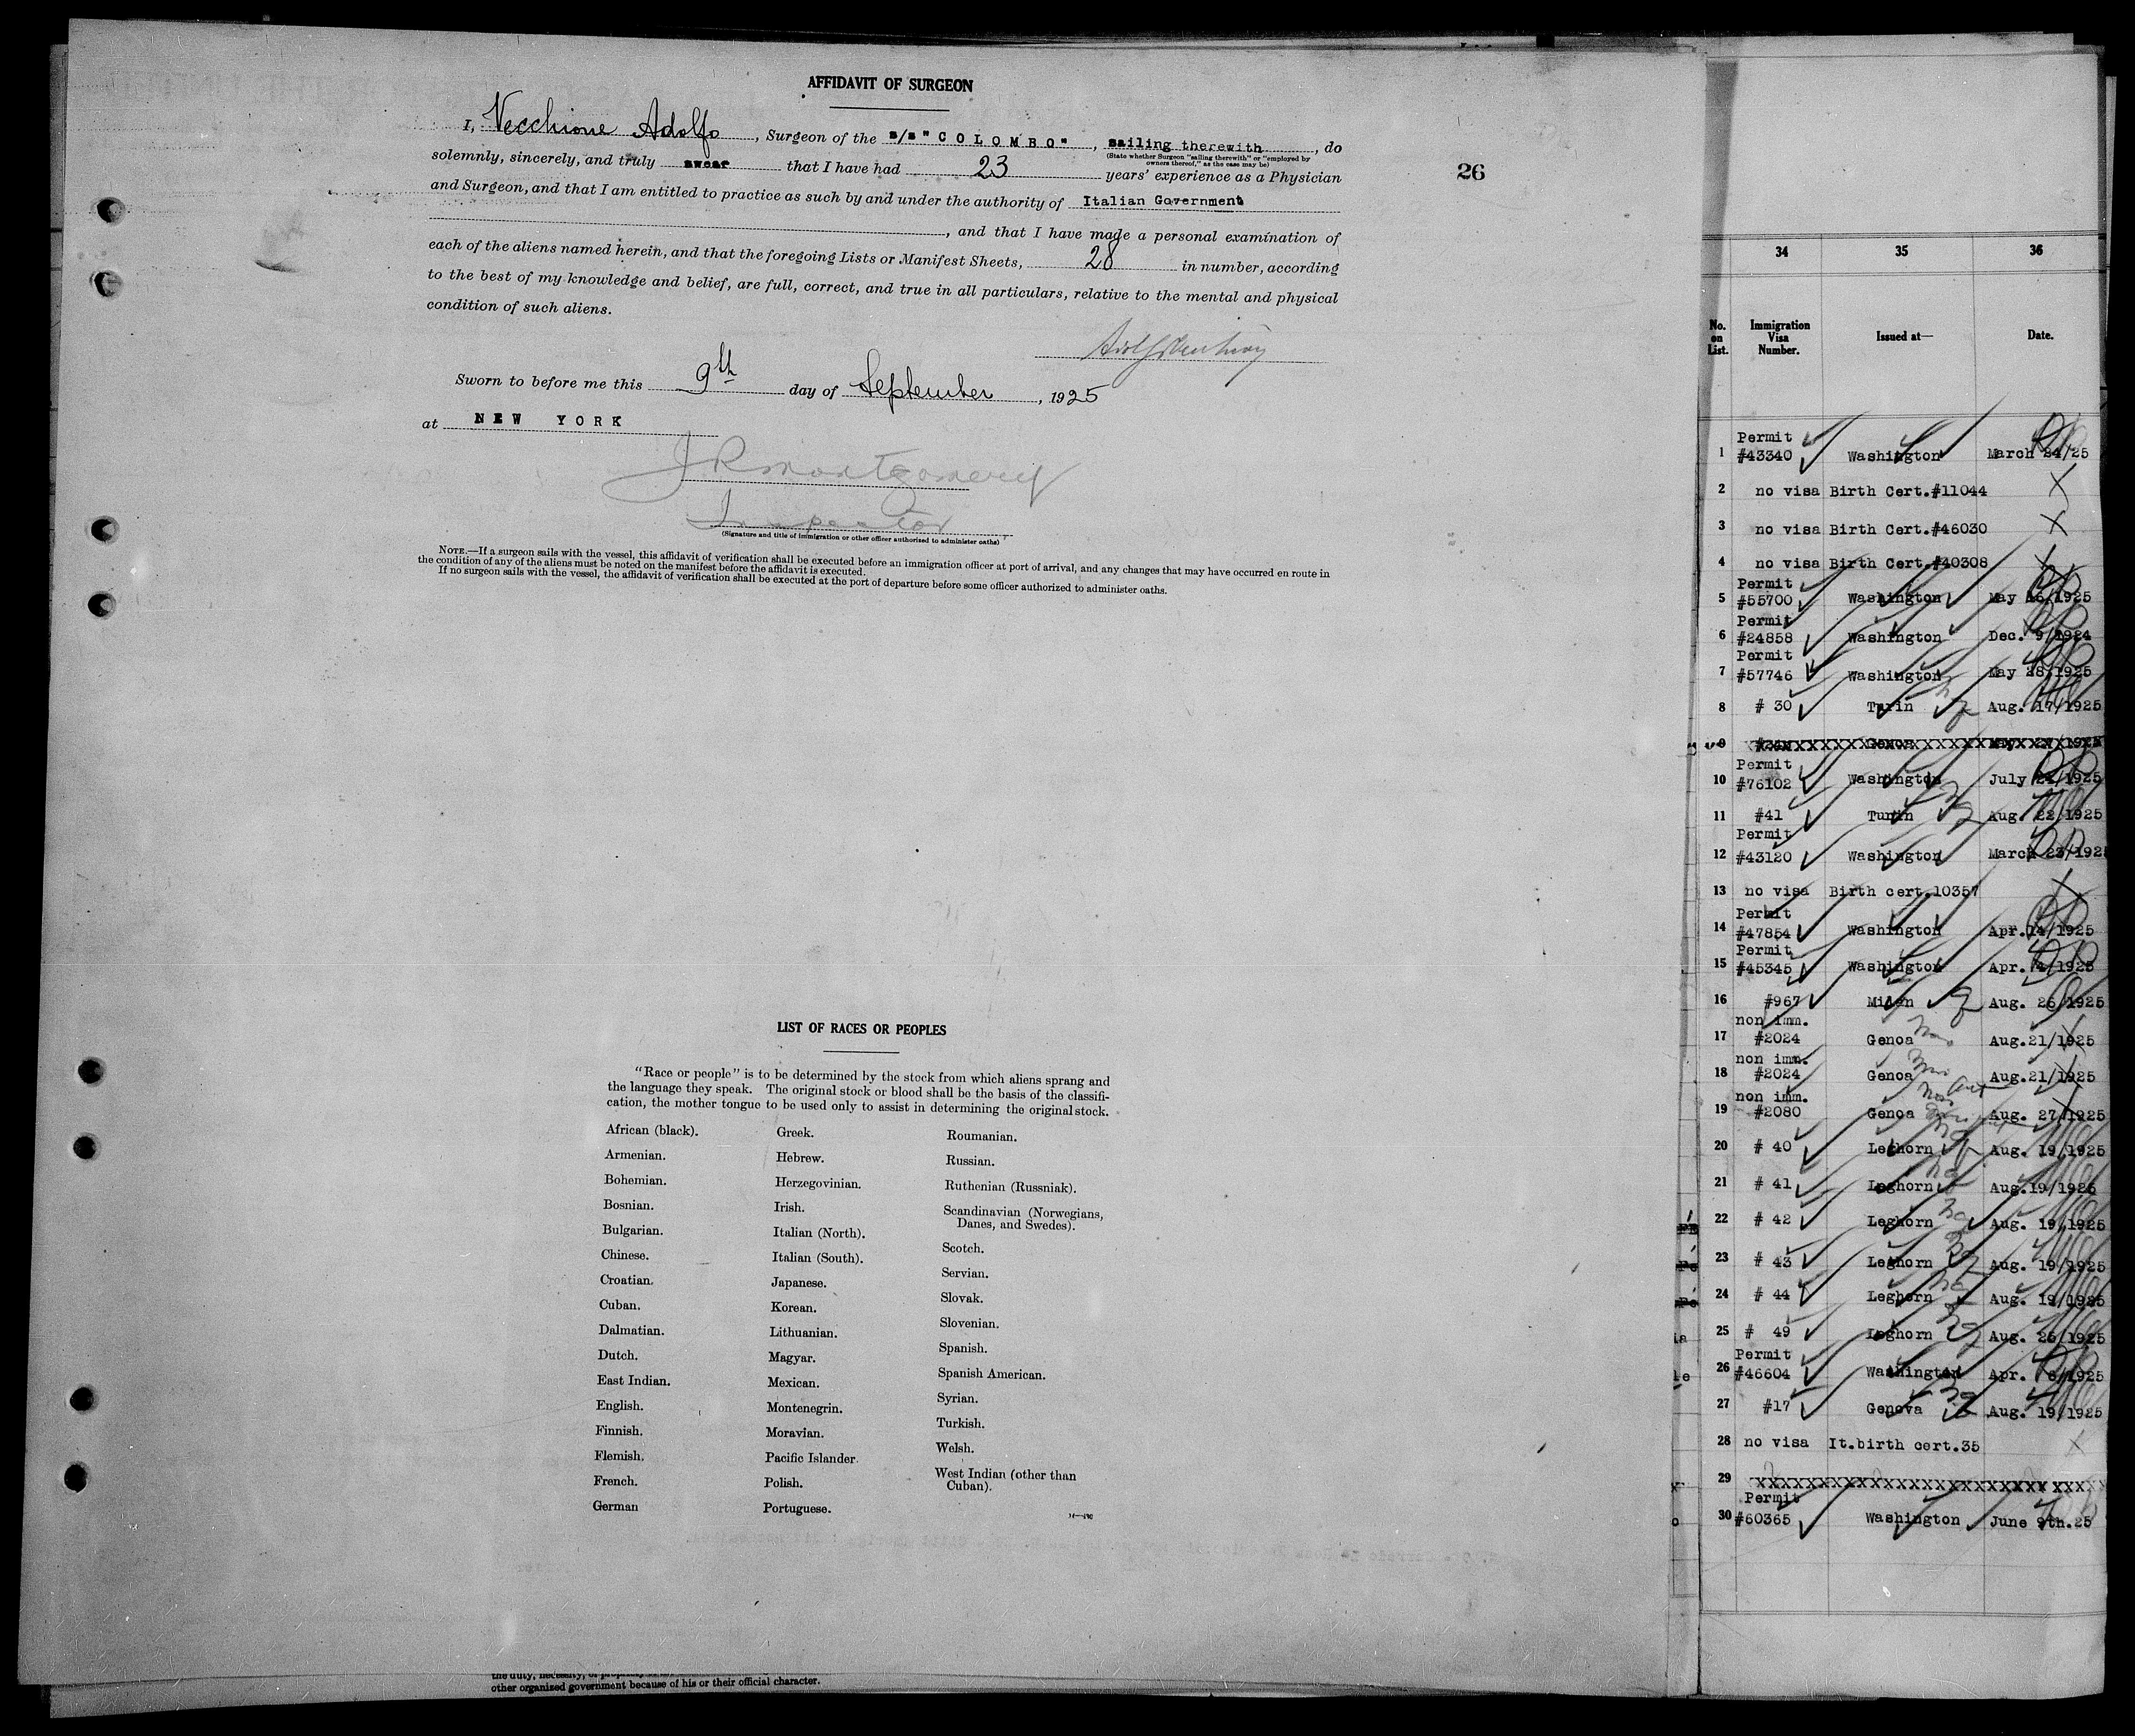 AFFIDAVIT OF SURGEON
I, Vecchione Adolfo, Surgeon of the s/s "COLOMBO", sailing therewith, do
(State whether Surgeon "sailing therewith" or "employed by
owners thereof," as the case may be)
solemnly, sincerely, and truly swear that I have had 23 years' experience as a Physician
and Surgeon, and that I am entitled to practice as such by and under the authority of Italian Government
, and that I have made a personal examination of
each of the aliens named herein, and that the foregoing Lists or Manifest Sheets, 28 in number, according
to the best of my knowledge and belief, are full, correct, and true in all particulars, relative to the mental and physical
condition of such aliens.
Sworn to before me this 9th day of September, 1925
at NEW YORK
J R Montgomery
Inspector
(Signature and title of immigration or other officer authorized to administer oaths)
NOTE.—If a surgeon sails with the vessel, this affidavit of verification shall be executed before an immigration officer at port of arrival, and any changes that may have occurred en route in
the condition of any of the aliens must be noted on the manifest before the affidavit is executed.
If no surgeon sails with the vessel, the affidavit of verification shall be executed at the port of departure before some officer authorized to administer oaths.
26
LIST OF RACES OR PEOPLES
"Race or people" is to be determined by the stock from which aliens sprang and
the language they speak. The original stock or blood shall be the basis of the classifi-
cation, the mother tongue to be used only to assist in determining the original stock.
African (black). Greek. Roumanian.
Armenian. Hebrew. Russian.
Bohemian. Herzegovinian. Ruthenian (Russniak).
Bosnian. Irish. Scandinavian (Norwegians,
Danes, and Swedes).
Bulgarian. Italian (North). Scotch.
Chinese. Italian (South). Servian.
Croatian. Japanese. Slovak.
Cuban. Korean. Slovenian.
Dalmatian. Lithuanian. Spanish.
Dutch. Magyar. Spanish American.
East Indian. Mexican. Syrian.
English. Montenegrin. Turkish.
Finnish. Moravian. Welsh.
Flemish. Pacific Islander. West Indian (other than
Cuban).
French. Polish.
German Portuguese.
other organized government because of his or their official character.
34 35 36
No. on List. Immigration Visa Number. Issued at— Date.
1 Permit #43340 Washington March 24/25
2 no visa Birth Cert.#11044
3 no visa Birth Cert.#46030
4 no visa Birth Cert.#40308
5 Permit #55700 Washington May 16/1925
6 Permit #24858 Washington Dec. 9/1924
7 Permit #57746 Washington May 28/1925
8 # 30 Turin Aug. 17/1925
9
10 Permit #76102 Washington July 24/1925
11 #41 Turin Aug. 22/1925
12 Permit #43120 Washington March 23/192
13 no visa Birth cert.10357
14 Permit #47854 Washington Apr.14/1925
15 Permit #45345 Washington Apr. 4/1925
16 #967 Milan Aug. 26/1925
17 non imm. #2024 Genoa Aug.21/1925
18 non imm. #2024 Genoa Aug.21/1925
19 non imm. #2080 Genoa Aug. 27/1925
20 # 40 Leghorn Aug. 19/1925
21 # 41 Leghorn Aug.19/1925
22 # 42 Leghorn Aug. 19/1925
23 # 43 Leghorn Aug. 19/1925
24 # 44 Leghorn Aug. 19/1925
25 # 49 Leghorn Aug. 26/1925
26 Permit #46604 Washington Apr. 8/1925
27 #17 Genova Aug. 19/1925
28 no visa It.birth cert.35
29
30 Permit #60365 Washington June 9th.25